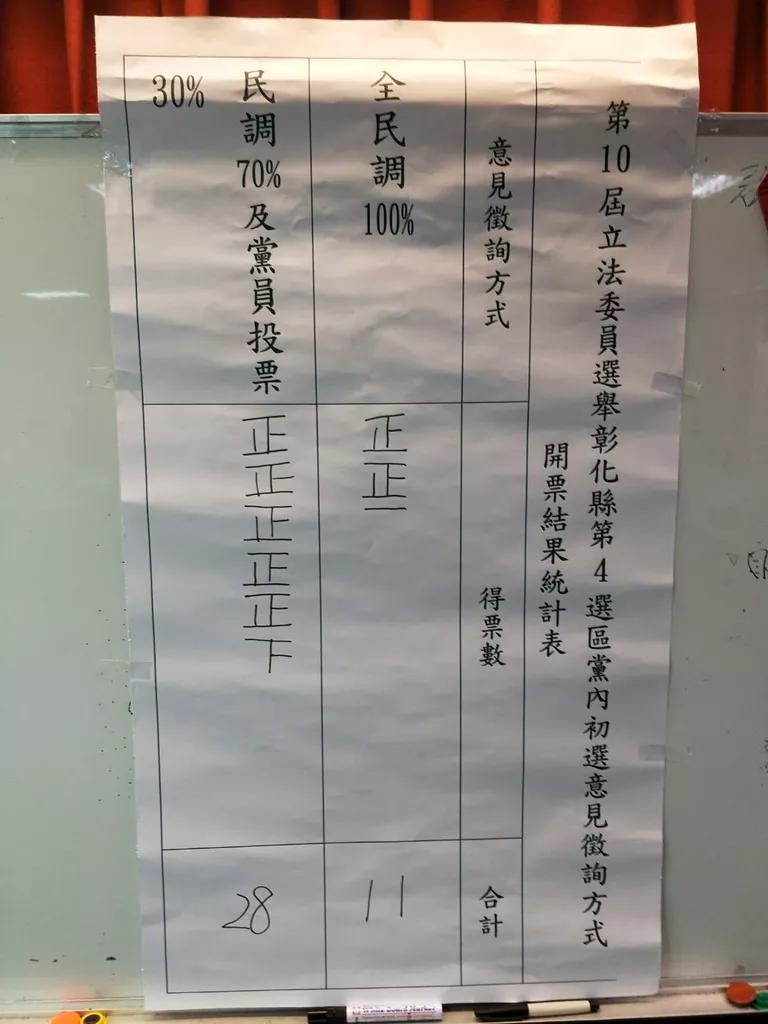 第10屆立法委員選舉彰化縣第4選區黨內初選意見徵詢方式
開票結果統計表
意見徵詢方式
得票數
合計
全民調100%
正正一
11
民調70%及黨員投票
30%
正正正正正下
28
White Board Marker